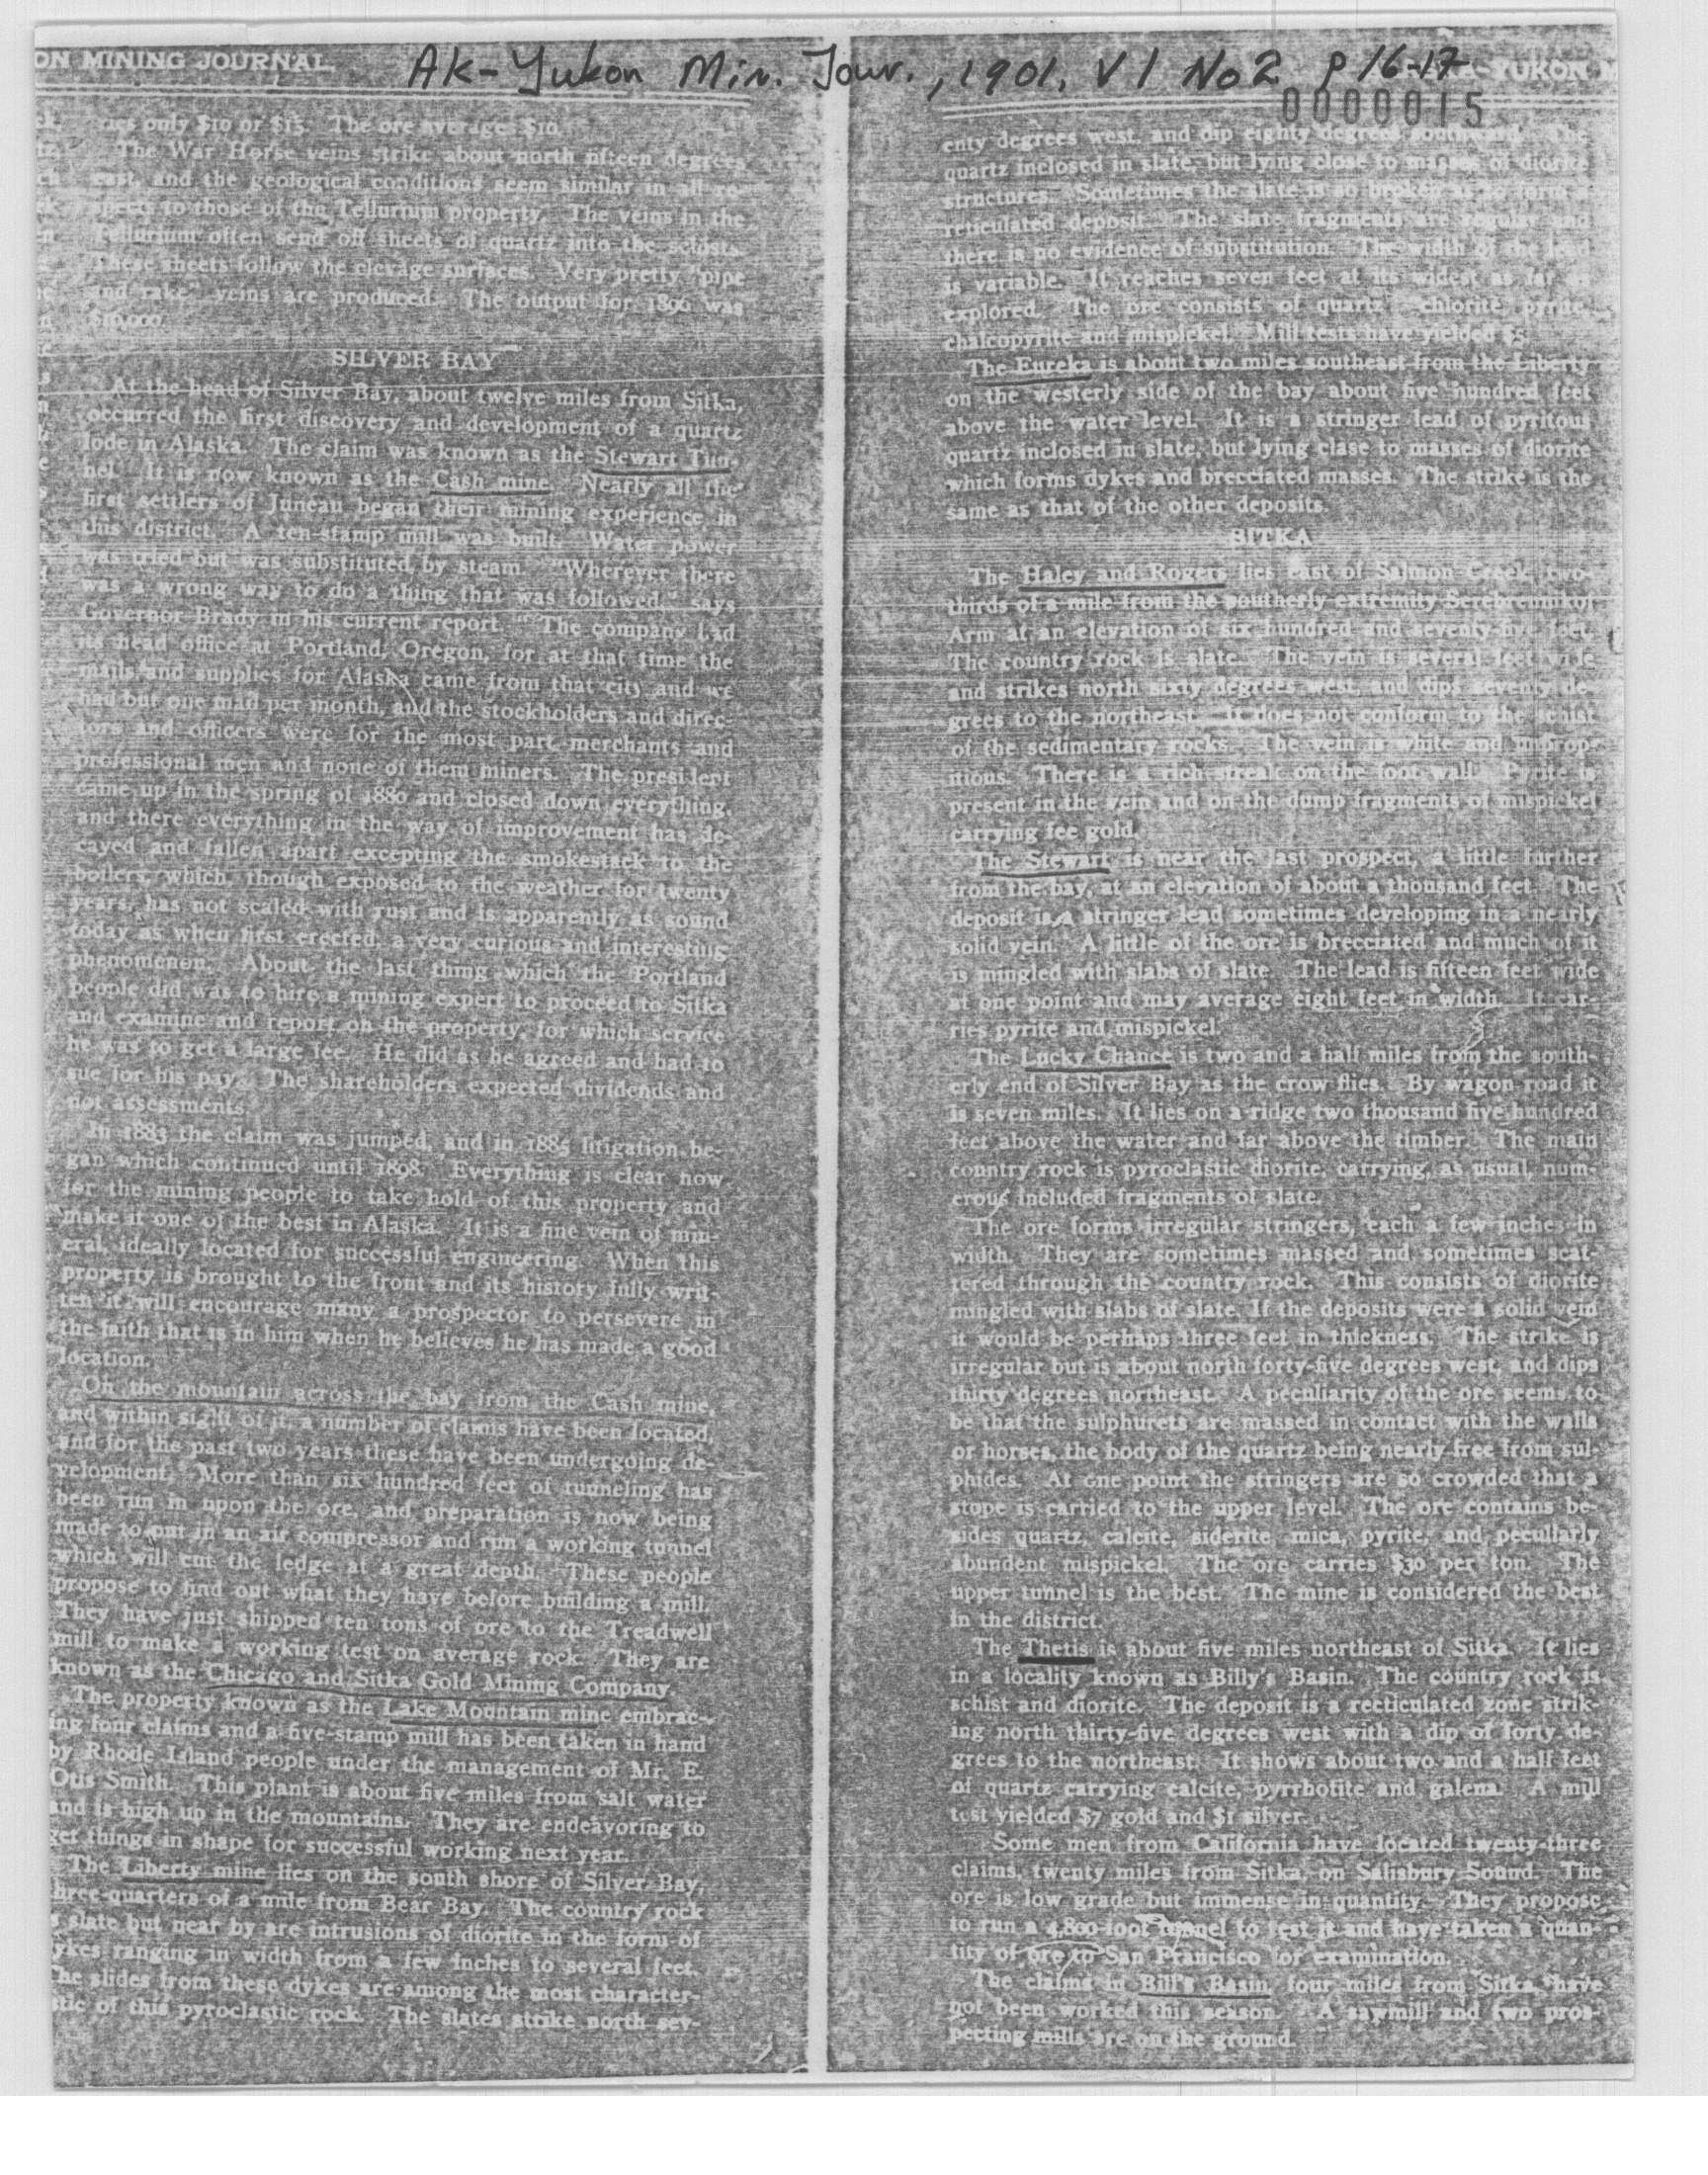 ON MINING JOURNAL
Ak-Yukon Min. Jour., 1901, V1 No2 p 16-17
-YUKON M
0000015
only $10 or $15. The ore averages $10.
The War Horse veins strike about north fifteen degrees
east, and the geological conditions seem similar in all re-
spects to those of the Tellurium property. The veins in the
Tellurium often send off sheets of quartz into the schists.
These sheets follow the clevage surfaces. Very pretty "pipe
and rake" veins are produced. The output for 1899 was
SILVER BAY
At the head of Silver Bay, about twelve miles from Sitka,
occurred the first discovery and development of a quartz
lode in Alaska. The claim was known as the Stewart Tun-
nel. It is now known as the Cash mine. Nearly all the
first settlers of Juneau began their mining experience in
this district. A ten-stamp mill was built. Water power
was tried but was substituted by steam. "Wherever there
was a wrong way to do a thing that was followed," says
Governor Brady in his current report. "The company had
its head office at Portland, Oregon, for at that time the
mails and supplies for Alaska came from that city and we
had but one mail per month, and the stockholders and direc-
tors and officers were for the most part merchants and
professional men and none of them miners. The president
came up in the spring of 1880 and closed down everything,
and there everything in the way of improvement has de-
cayed and fallen apart excepting the smokestack to the
boilers, which, though exposed to the weather for twenty
years, has not scaled with rust and is apparently as sound
today as when first erected, a very curious and interesting
phenomenon. About the last thing which the Portland
people did was to hire a mining expert to proceed to Sitka
and examine and report on the property, for which service
he was to get a large fee. He did as he agreed and had to
sue for his pay. The shareholders expected dividends and
not assessments.
In 1883 the claim was jumped, and in 1885 litigation be-
gan which continued until 1898. Everything is clear now
for the mining people to take hold of this property and
make it one of the best in Alaska. It is a fine vein of min-
eral, ideally located for successful engineering. When this
property is brought to the front and its history fully writ-
ten it will encourage many a prospector to persevere in
the faith that is in him when he believes he has made a good
location.
On the mountain across the bay from the Cash mine,
and within sight of it, a number of claims have been located,
and for the past two years these have been undergoing de-
velopment. More than six hundred feet of tunneling has
been run in upon the ore, and preparation is now being
made to put in an air compressor and run a working tunnel
which will cut the ledge at a great depth. These people
propose to find out what they have before building a mill.
They have just shipped ten tons of ore to the Treadwell
mill to make a working test on average rock. They are
known as the Chicago and Sitka Gold Mining Company.
The property known as the Lake Mountain mine embrac-
ing four claims and a five-stamp mill has been taken in hand
by Rhode Island people under the management of Mr. E.
Otis Smith. This plant is about five miles from salt water
and is high up in the mountains. They are endeavoring to
get things in shape for successful working next year.
The Liberty mine lies on the south shore of Silver Bay,
three-quarters of a mile from Bear Bay. The country rock
s slate but near by are intrusions of diorite in the form of
ykes ranging in width from a few inches to several feet.
The slides from these dykes are among the most character-
stic of this pyroclastic rock. The slates strike north sev-
enty degrees west, and dip eighty degrees southward. The
quartz inclosed in slate, but lying close to masses of diorite
structures. Sometimes the slate is so broken as to form a
reticulated deposit. The slate fragments are regular and
there is no evidence of substitution. The width of the lead
is variable. It reaches seven feet at its widest as far as
explored. The ore consists of quartz, chlorite pyrite,
chalcopyrite and mispickel. Mill tests have yielded $5.
The Eureka is about two miles southeast from the Liberty
on the westerly side of the bay about five hundred feet
above the water level. It is a stringer lead of pyritous
quartz inclosed in slate, but lying clase to masses of diorite
which forms dykes and brecciated masses. The strike is the
same as that of the other deposits.
SITKA
The Haley and Rogers lies east of Salmon Creek two-
thirds of a mile from the southerly extremity Serebrennikof
Arm at an elevation of six hundred and seventy-five feet.
The country rock is slate. The vein is several feet wide
and strikes north sixty degrees west, and dips seventy de-
grees to the northeast. It does not conform to the schist
of the sedimentary rocks. The vein is white and unprop-
itious. There is a rich streak on the foot wall. Pyrite is
present in the vein and on the dump fragments of mispickel
carrying fee gold.
The Stewart is near the last prospect, a little further
from the bay, at an elevation of about a thousand feet. The
deposit is a stringer lead sometimes developing in a nearly
solid vein. A little of the ore is brecciated and much of it
is mingled with slabs of slate. The lead is fifteen feet wide
at one point and may average eight feet in width. It car-
ries pyrite and mispickel.
The Lucky Chance is two and a half miles from the south-
erly end of Silver Bay as the crow flies. By wagon road it
is seven miles. It lies on a ridge two thousand five hundred
feet above the water and far above the timber. The main
country rock is pyroclastic diorite, carrying, as usual, num-
erous included fragments of slate.
The ore forms irregular stringers, each a few inches in
width. They are sometimes massed and sometimes scat-
tered through the country rock. This consists of diorite
mingled with slabs of slate. If the deposits were a solid vein
it would be perhaps three feet in thickness. The strike is
irregular but is about north forty-five degrees west, and dips
thirty degrees northeast. A peculiarity of the ore seems to
be that the sulphurets are massed in contact with the walls
or horses, the body of the quartz being nearly free from sul-
phides. At one point the stringers are so crowded that a
stope is carried to the upper level. The ore contains be-
sides quartz, calcite, siderite, mica, pyrite, and, peculiarly
abundent mispickel. The ore carries $30 per ton. The
upper tunnel is the best. The mine is considered the best
in the district.
The Thetis is about five miles northeast of Sitka. It lies
in a locality known as Billy's Basin. The country rock is
schist and diorite. The deposit is a recticulated zone strik-
ing north thirty-five degrees west with a dip of forty de-
grees to the northeast. It shows about two and a half feet
of quartz carrying calcite, pyrrhotite and galena. A mill
test yielded $7 gold and $1 silver.
Some men from California have located twenty-three
claims, twenty miles from Sitka, on Salisbury Sound. The
ore is low grade but immense in quantity. They propose
to run a 4,800-foot tunnel to test it and have taken a quan-
tity of ore to San Francisco for examination.
The claims in Bill's Basin, four miles from Sitka, have
not been worked this season. A sawmill and two pros-
pecting mills are on the ground.